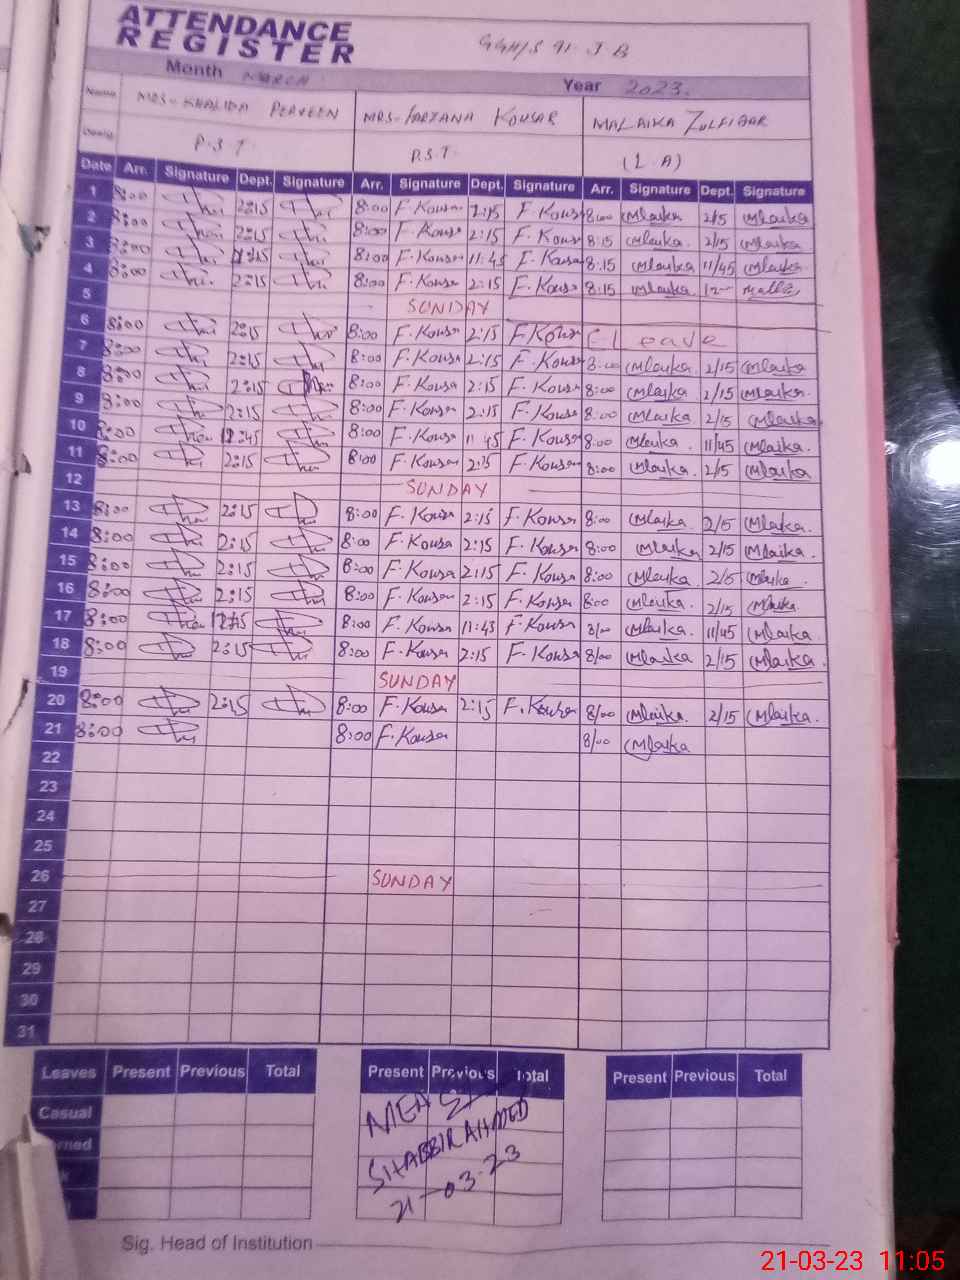 ATTENDANCE
REGISTER
Month MARCH Year 2023.
Name MRS-KHALIDA PERVEEN MRS-FARZANA KOUSAR MALAIKA ZULFIQAR
P.S.T P.S.T. (L.A)
Date Arr. Signature Dept. Signature Arr. Signature Dept. Signature Arr. Signature Dept. Signature
1 8:00 2:15 8:00 F. Kousar 2:15 F. Kousar 8:00 Mlaika 2/15 Mlaika
2 8:00 2:15 8:00 F. Kousar 2:15 F. Kousar 8:15 Mlaika. 2/15 Mlaika
3 8:00 8:00 F. Kousar 11:45 F. Kousar 8:15 Mlaika 11/45 Mlaika
4 8:00 2:15 8:00 F. Kousar 2:15 F. Kousar 8:15 Mlaika.
5 SUNDAY
6 8:00 2:15 8:00 F. Kousar 2:15 F. Kousar Leave
7 8:00 2:15 8:00 F. Kousar 2:15 F. Kousar 8:00 Mlaika. 2/15 Mlaika
8 8:00 2:15 8:00 F. Kousar 2:15 F. Kousar 8:00 Mlaika 2/15 Mlaika.
9 8:00 2:15 8:00 F. Kousar 2:15 F. Kousar 8:00 Mlaika 2/15 Mlaika
10 8:00 8:00 F. Kousar 11 45 F. Kousar 8:00 Mlaika. 11/45 Mlaika.
11 8:00 2:15 8:00 F. Kousar F. Kousar 8:00 Mlaika. 2/15 Mlaika
12 SUNDAY
13 8:00 2:15 8:00 F. Kousar 2:15 F. Kousar 8:00 Mlaika. 2/15 Mlaika.
14 8:00 2:15 8:00 F. Kousar 2:15 F. Kousar 8:00 Mlaika 2/15 Mlaika.
15 8:00 2:15 8:00 F. Kousar 2:15 F. Kousar 8:00 Mlaika 2/15 Mlaika.
16 8:00 2:15 8:00 F. Kousar 2:15 F. Kousar 8:00 Mlaika. 2/15 Mlaika.
17 8:00 8:00 F. Kousar 11:45 F. Kousar 8/00 Mlaika. 11/45 Mlaika.
18 8:00 2:15 8:00 F. Kousar 2:15 F. Kousar 8/00 Mlaika. 2/15 Mlaika.
19 SUNDAY
20 8:00 2:15 8:00 F. Kousar 2:15 F. Kousar 8/00 Mlaika. 2/15 Mlaika.
21 8:00 8:00 F. Kousar 8/00 Mlaika
22
23
24
25
26 SUNDAY
27
28
29
30
31
Leaves Present Previous Total Present Previous Total Present Previous Total
Casual
MEA
SHABBIR AHMED
21-03-23
Sig. Head of Institution
21-03-23 11:05